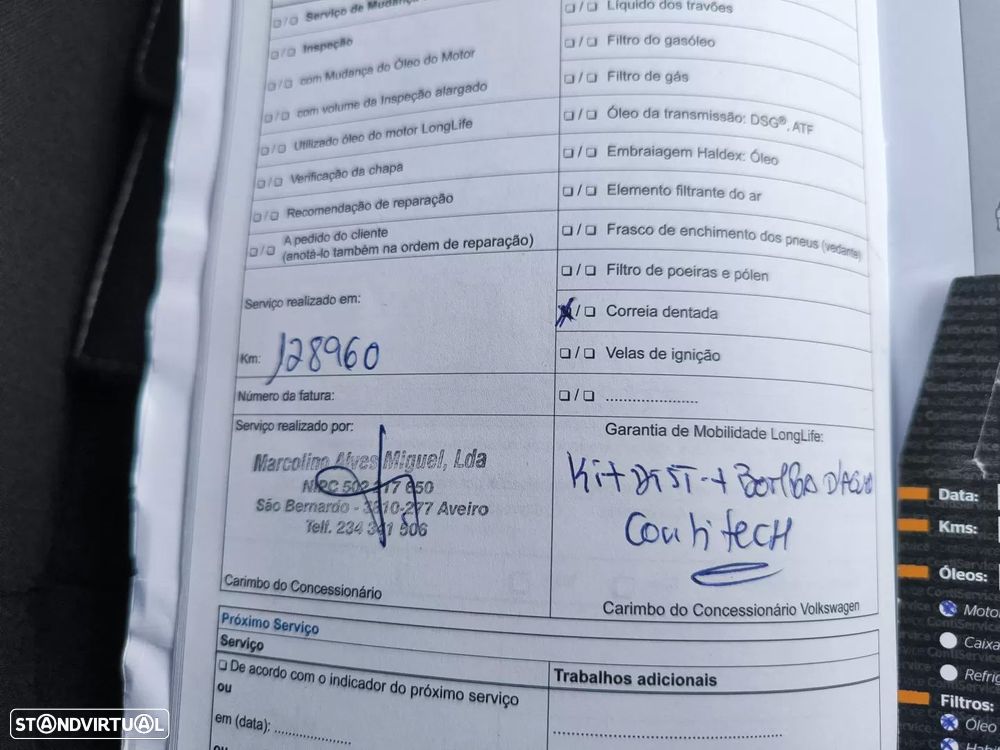 ❏/❏ Serviço de Mudança
❏/❏ Inspeção
❏/❏ com Mudança do Óleo do Motor
❏/❏ com volume da Inspeção alargado
❏/❏ Utilizado óleo do motor LongLife
❏/❏ Verificação da chapa
❏/❏ Recomendação de reparação
❏/❏ A pedido do cliente
(anotá-lo também na ordem de reparação)
Serviço realizado em:
Km: 128960
Número da fatura:
Serviço realizado por:
Marcolino Alves Miguel, Lda
São Bernardo - 3810-277 Aveiro
Telf. 234 341 506
Carimbo do Concessionário
❏/❏ Líquido dos travões
❏/❏ Filtro do gasóleo
❏/❏ Filtro de gás
❏/❏ Óleo da transmissão: DSG®, ATF
❏/❏ Embraiagem Haldex: Óleo
❏/❏ Elemento filtrante do ar
❏/❏ Frasco de enchimento dos pneus (vedante)
❏/❏ Filtro de poeiras e pólen
x/❏ Correia dentada
❏/❏ Velas de ignição
❏/❏ .....................
Garantia de Mobilidade LongLife:
Kit DIST + Bomba D'Água
Contitech
Carimbo do Concessionário Volkswagen
Próximo Serviço
Serviço
❏ De acordo com o indicador do próximo serviço
ou
em (data): ....................
ou
Trabalhos adicionais
Data:
Kms:
Óleos:
Moto
Caixa
Refrig
Filtros:
Óleo
Hab
STANDVIRTUAL